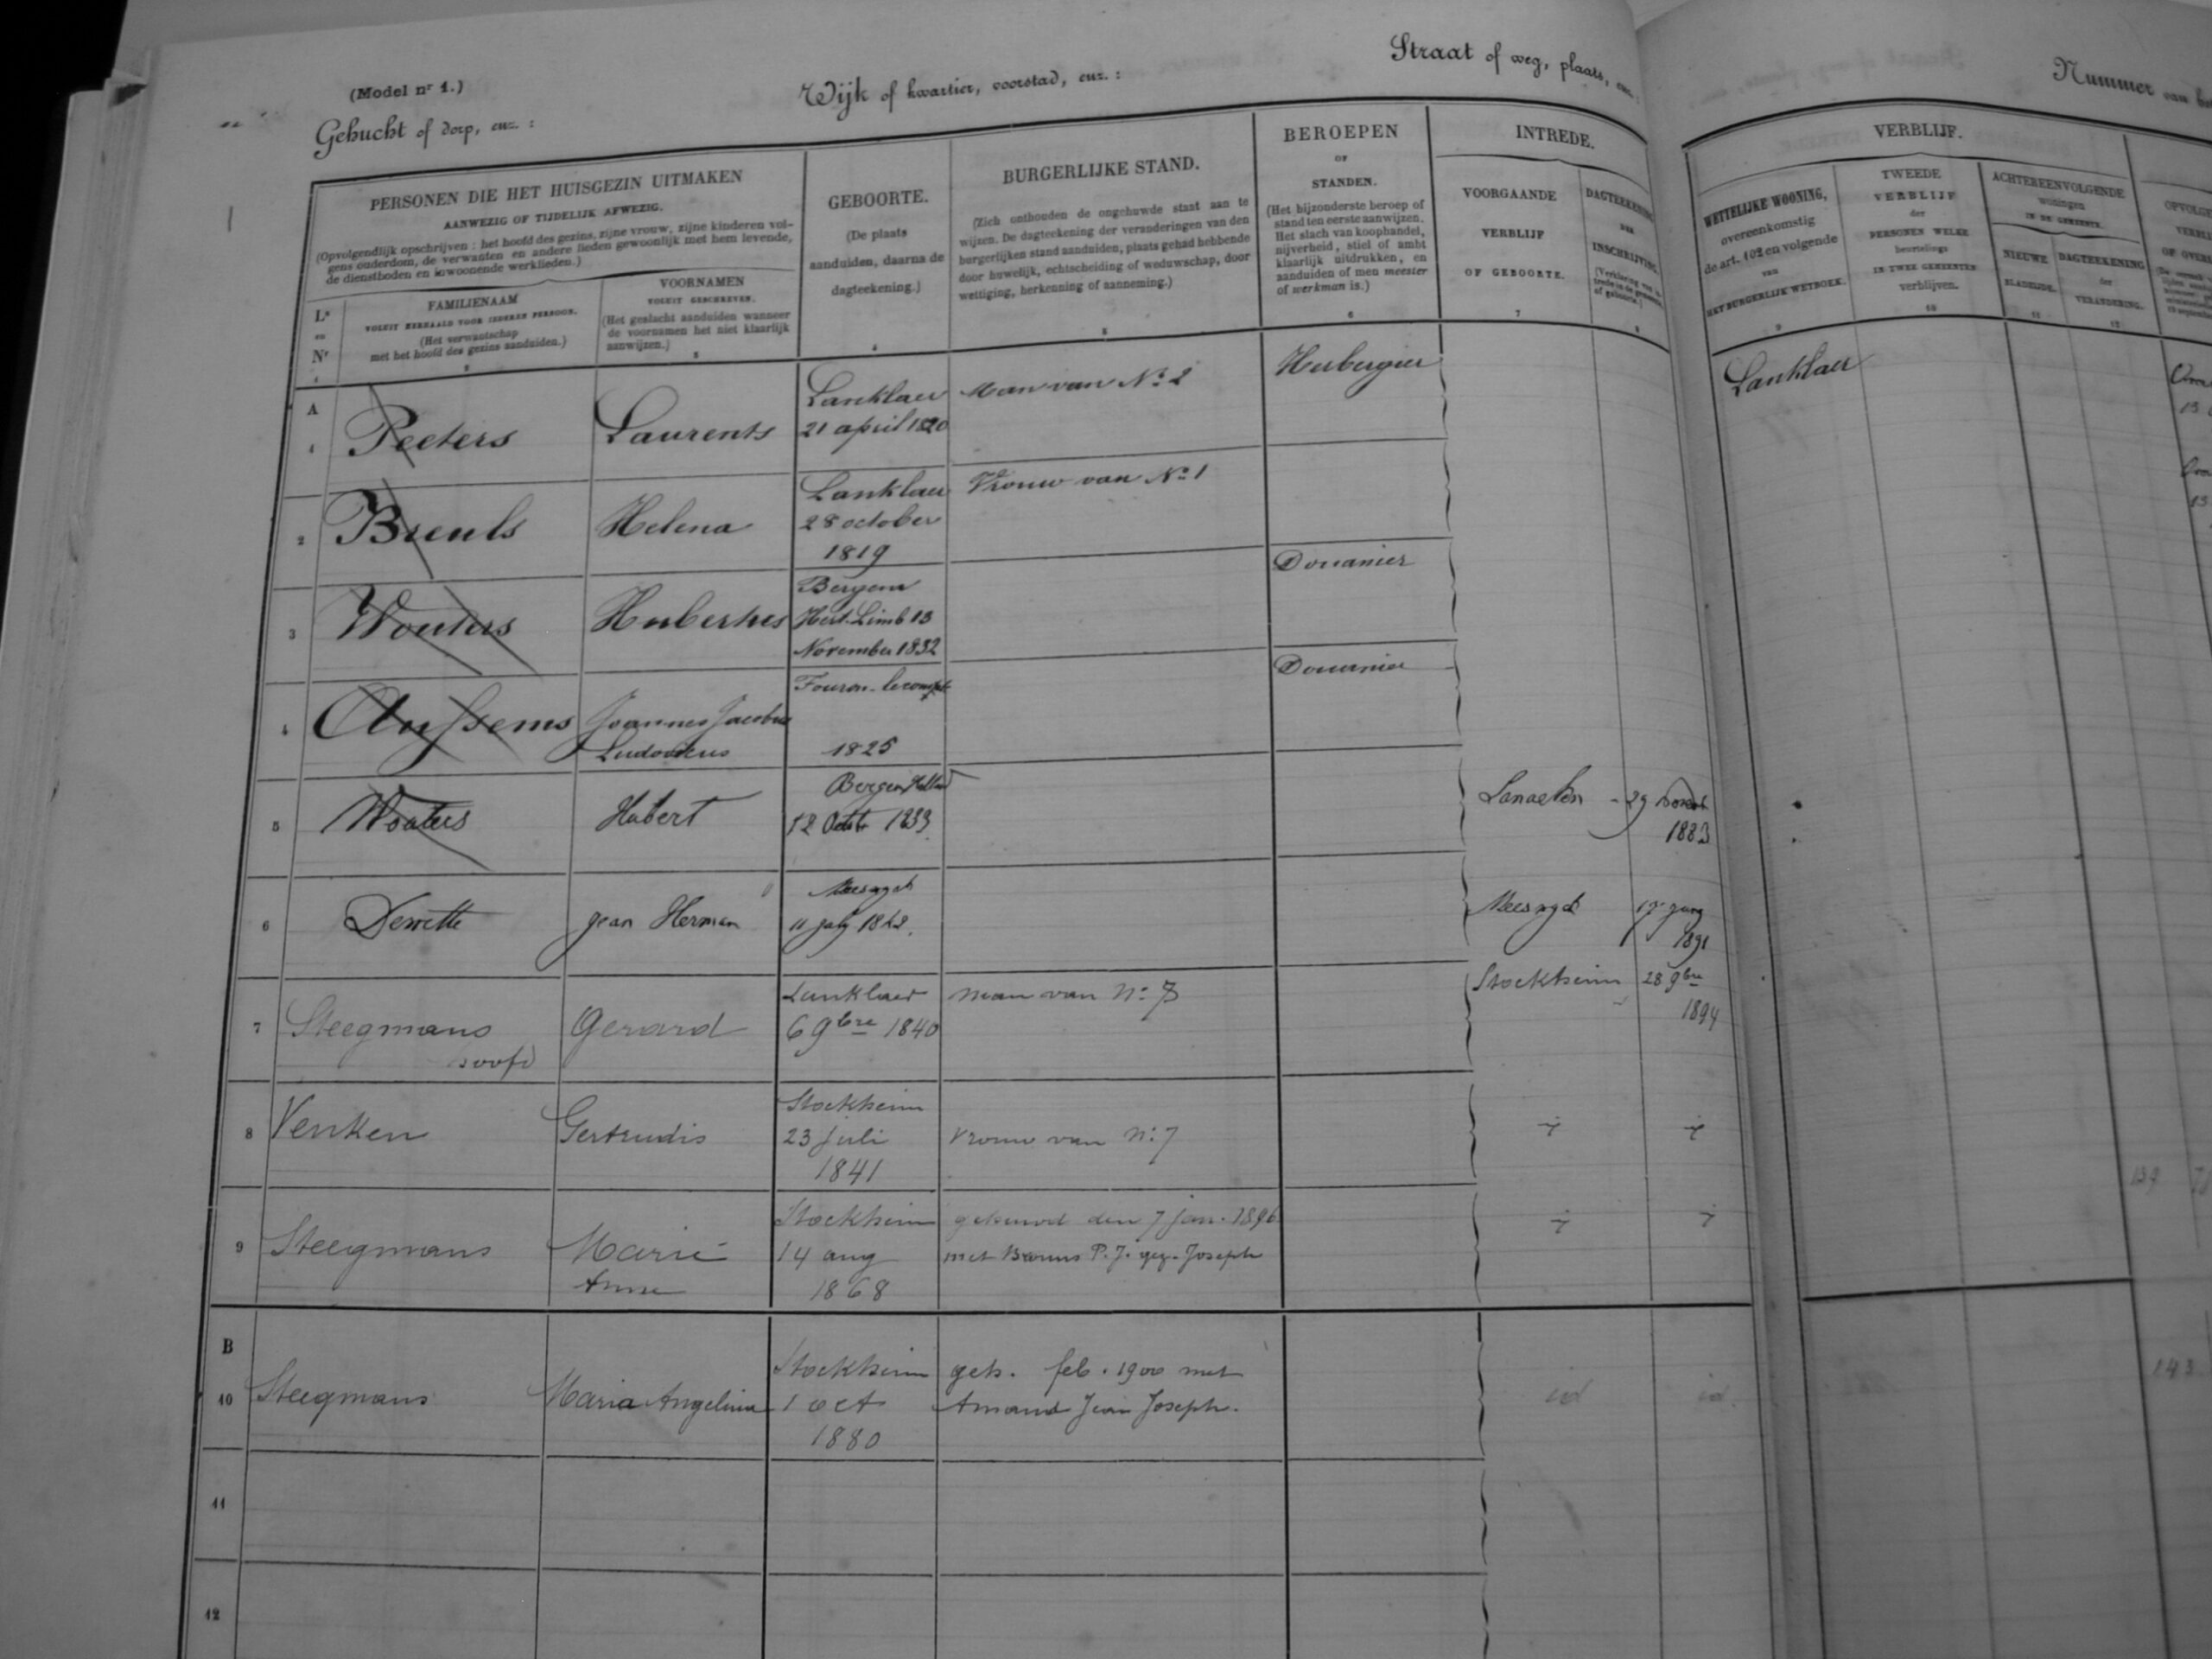 (Model nr 1.)
Gehucht of dorp, enz. :
Wijk of kwartier, voorstad, enz. :
Straat of weg, plaats, enz. :
Nummer van
PERSONEN DIE HET HUISGEZIN UITMAKEN
AANWEZIG OF TIJDELIJK AFWEZIG.
(Opvolgendlijk opschrijven : het hoofd des gezins, zijne vrouw, zijne kinderen vol-
gens ouderdom, de verwanten en andere lieden gewoonlijk met hem levende,
de dienstboden en inwoonende werklieden.)
Lr
en
Nr
FAMILIENAAM
VOLUIT HERHAALD VOOR IEDEREN PERSOON.
(Het verwantschap
met het hoofd des gezins aanduiden.)
2
VOORNAMEN
VOLUIT GESCHREVEN.
(Het geslacht aanduiden wanneer
de voornamen het niet klaarlijk
aanwijzen.)
3
GEBOORTE.
(De plaats
aanduiden, daarna de
dagteekening.)
4
BURGERLIJKE STAND.
(Zich onthouden de ongehuwde staat aan te
wijzen. De dagteekening der veranderingen van den
burgerlijken stand aanduiden, plaats gehad hebbende
door huwelijk, echtscheiding of weduwschap, door
wettiging, herkenning of aanneming.)
5
BEROEPEN
OF
STANDEN.
(Het bijzonderste beroep of
stand ten eerste aanwijzen.
Het slach van koophandel,
nijverheid, stiel of ambt
klaarlijk uitdrukken, en
aanduiden of men meester
of werkman is.)
6
INTREDE.
VOORGAANDE
VERBLIJF
OF GEBOORTE.
7
DAGTEEKENING
DER
INSCHRIJVING.
8
VERBLIJF.
WETTELIJKE WONING,
overeenkomstig
de art. 102 en volgende
van
HET BURGERLIJK WETBOEK.
9
TWEEDE
VERBLIJF
der
PERSONEN WELKE
beurtelings
IN TWEE GEMEENTEN
verblijven.
10
ACHTEREENVOLGENDE
woningen
IN DE GEMEENTE.
NIEUWE
BLADZIJDE.
11
DAGTEEKENING
der
VERANDERING.
12
A
1 Peeters Laurents Lanklaer Man van No 2 Herbergier Lanklaer
21 april 1820
2 Breuls Helena Lanklaer Vrouw van No 1
28 october
1819
3 Wouters Hubertus Bergen Douanier
Hert. Limb 13
November 1832
4 Anssems Joannes Jacobus Fouron-lecompte Douanier
Ludovicus 1825
5 Wouters Hubert Bergen Holland Lanaeken 29
12 Octr 1833 1883
6 Dewitte Jean Herman
11 july 1842. 1891
7 Steegmans Gerard Lanklaer man van No 8 Stockheim 28 9bre
hoofd 6 9bre 1840 1894
8 Venken Gertrudis Stockheim
23 juli Vrouw van No 7
1841
9 Steegmans Marie Stockheim gehuwd den 7 jan. 1896
Anne 14 aug met P. J. gez. Joseph
1868
B
10 Steegmans Maria Angelina Stockheim geh. feb. 1900 met id id.
1 oct Amand Jean Joseph.
1880
143
11
12